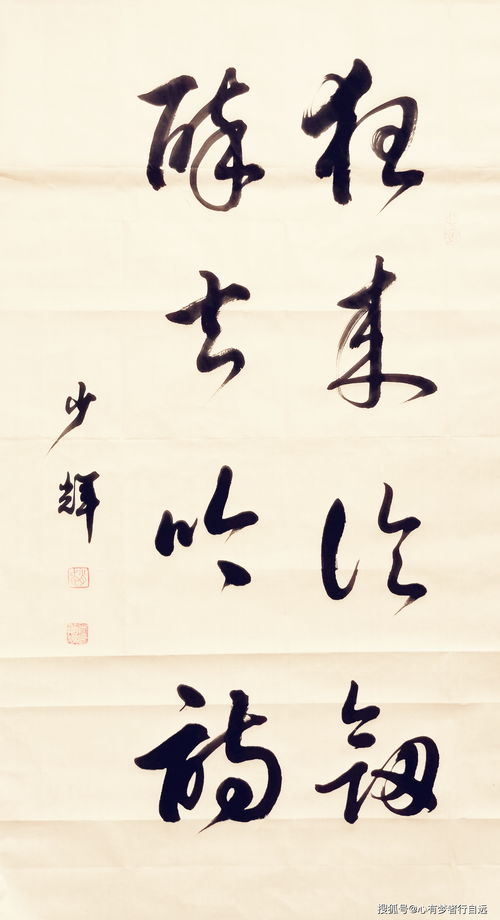 狂来论剑
醉去吟诗
少辉
搜狐号@心有梦者行自远